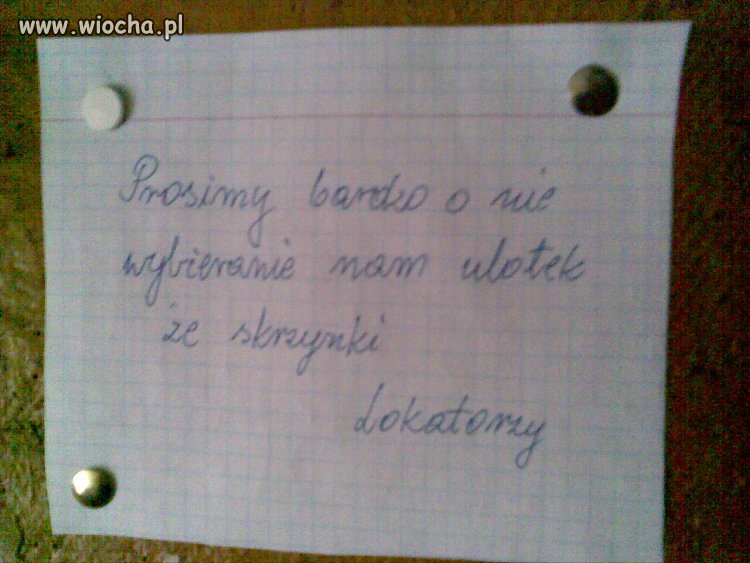 www.wiocha.pl
Prosimy bardzo o nie
wybieranie nam ulotek
że skrzynki
Lokatorzy